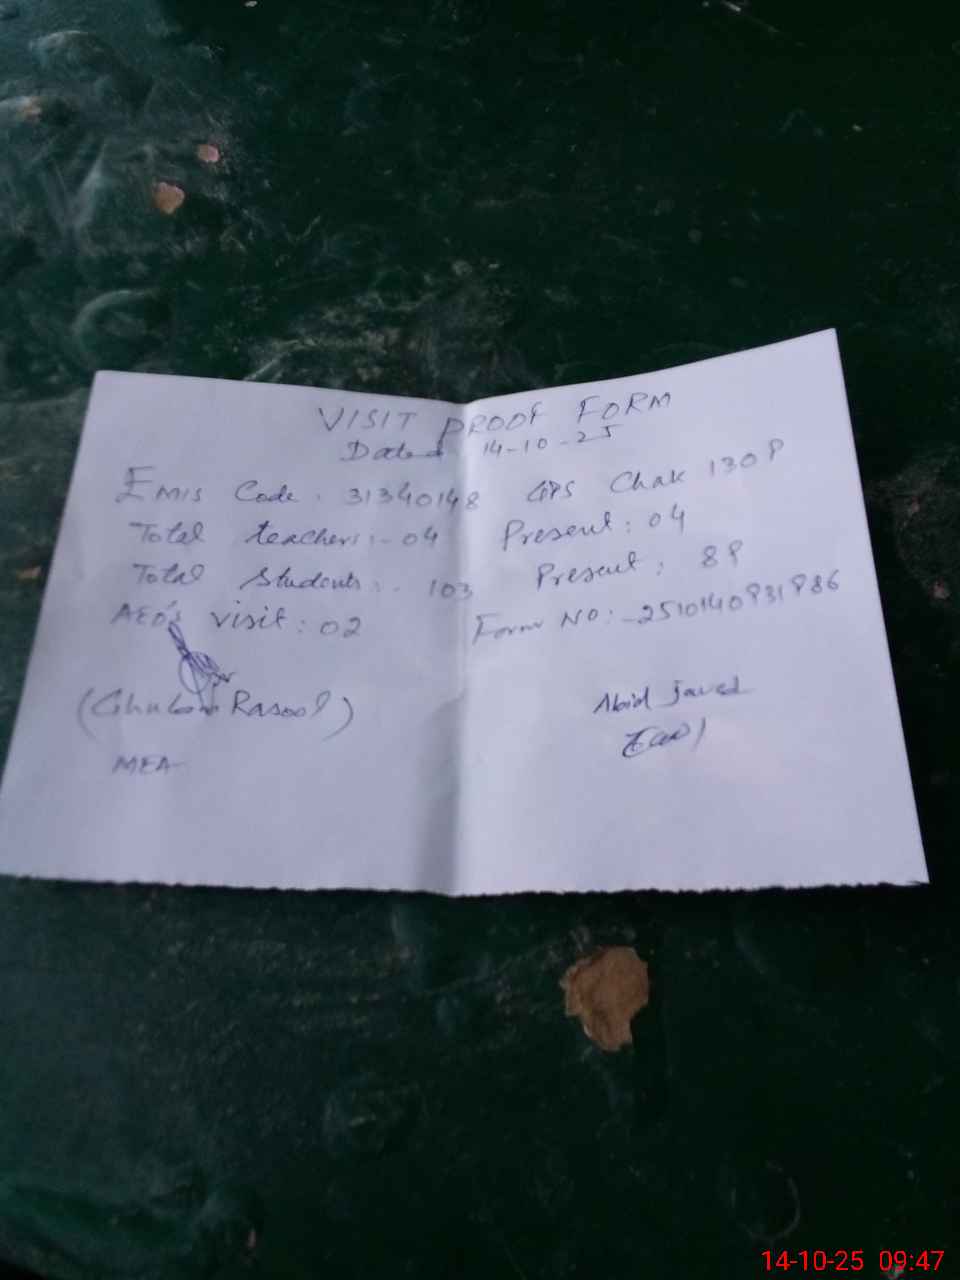 VISIT PROOF FORM
Dated 14-10-25
EMIS Code: 31340148 GPS Chak 130P
Total teachers:- 04 Present: 04
Total Students:. 103 Present: 89
AEO's visit: 02 Form NO:-2510140931986
(Ghulam Rasool) Abid Javed
MEA
14-10-25 09:47